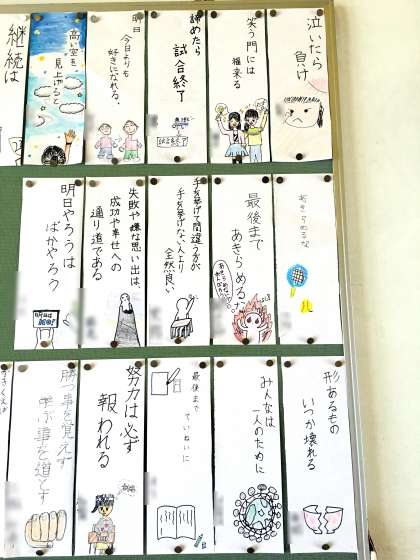 泣いたら
負け
笑う門には
福来る
諦めたら
試合終了
明日
今日よりも
好きになれる、
高い空を
見上げると
継続は
あきらめるな
最後まで
あきらめるな
手を挙げて間違う方が
手を挙げない人より
全然良い
失敗や嫌な思い出は、
成功や幸せへの
通り道である
明日やろうは
ばかやろう
形あるもの
いつか壊れる
みんなは
一人のために
最後まで
ていねいに
努力は必ず
報われる
勝つ事を覚えず
事を道とす